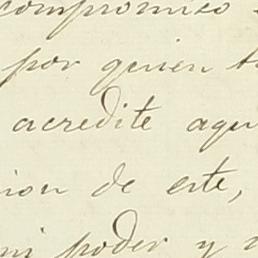 compromiso
por quien
acredite aqu
ion de este,
mi poder y